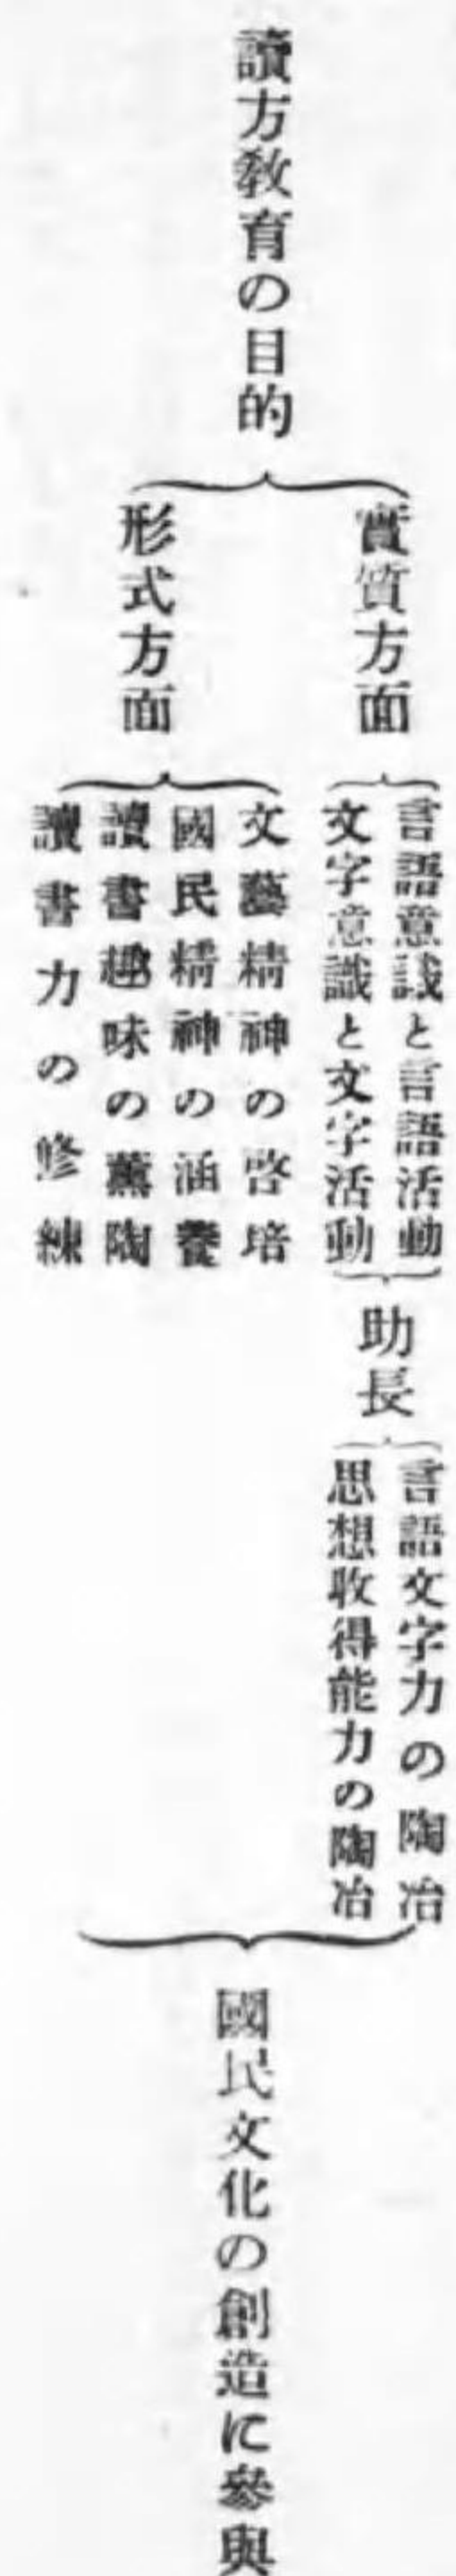 讀方敎育の目的
實質方面
言語意識と言語活動
文字意識と文字活動
助長
言語文字力の陶冶
思想收得能力の陶冶
形式方面
文藝精神の啓培
國民精神の涵養
讀書趣味の薰陶
讀書力の修練
國民文化の創造に參與